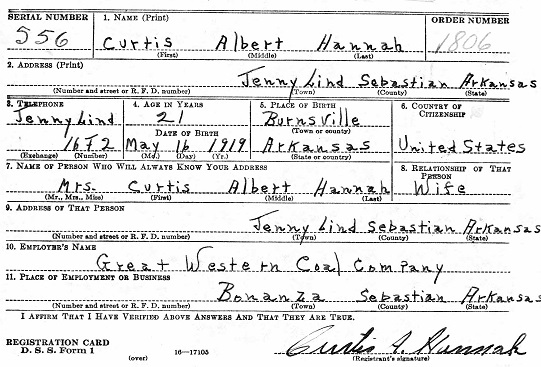 SERIAL NUMBER 1. NAME (Print) ORDER NUMBER
556 Curtis Albert Hannah 1806
(First) (Middle) (Last)
2. ADDRESS (Print)
Jenny Lind Sebastian Arkansas
(Number and street or R. F. D. number) (Town) (County) (State)
3. TELEPHONE 4. AGE IN YEARS 5. PLACE OF BIRTH 6. COUNTRY OF CITIZENSHIP
Jenny Lind 21 Burnsville
DATE OF BIRTH (Town or county)
16F2 May 16 1919 Arkansas United States
(Exchange) (Number) (Mo.) (Day) (Yr.) (State or country)
7. NAME OF PERSON WHO WILL ALWAYS KNOW YOUR ADDRESS 8. RELATIONSHIP OF THAT PERSON
Mrs. Curtis Albert Hannah Wife
(Mr., Mrs., Miss) (First) (Middle) (Last)
9. ADDRESS OF THAT PERSON
Jenny Lind Sebastian Arkansas
(Number and street or R. F. D. number) (Town) (County) (State)
10. EMPLOYER'S NAME
Great Western Coal Company
11. PLACE OF EMPLOYMENT OR BUSINESS
Bonanza Sebastian Arkansas
(Number and street or R. F. D. number) (Town) (County) (State)
I AFFIRM THAT I HAVE VERIFIED ABOVE ANSWERS AND THAT THEY ARE TRUE.
REGISTRATION CARD
D. S. S. Form 1 (over) 16—17105 Curtis A. Hannah
(Registrant's signature)